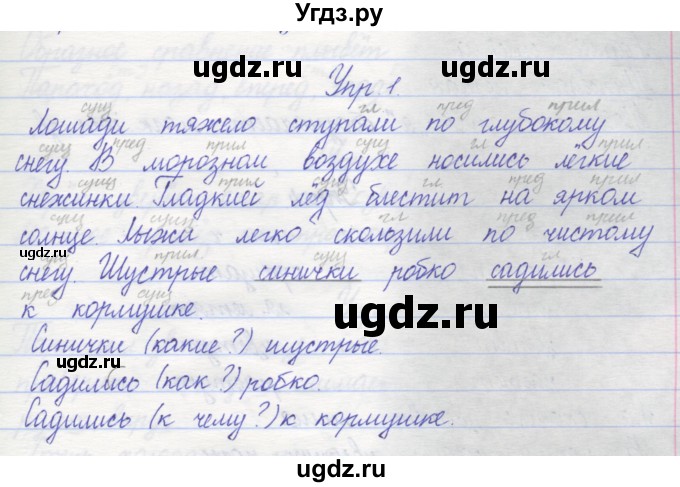 Угдз.ру
ugdz.ru ugdz.ru
Упр 1.
сущ гл пред прил
Лошади тяжело ступали по глубокому
сущ пред прил сущ гл прил
снегу. В морозном воздухе носились лёгкие
сущ прил сущ гл пред прил
снежинки. Гладкий лёд блестит на ярком
сущ сущ гл пред прил
солнце. Лыжи легко скользили по чистому
ugdz.ru
сущ прил сущ гл
снегу. Шустрые синички робко садились
пред сущ
к кормушке.
ugdz.ru
Синички (какие?) шустрые.
Садились (как?) робко.
ugdz.ru ugdz.ru
Садились (к чему?) к кормушке.
ugdz.ru